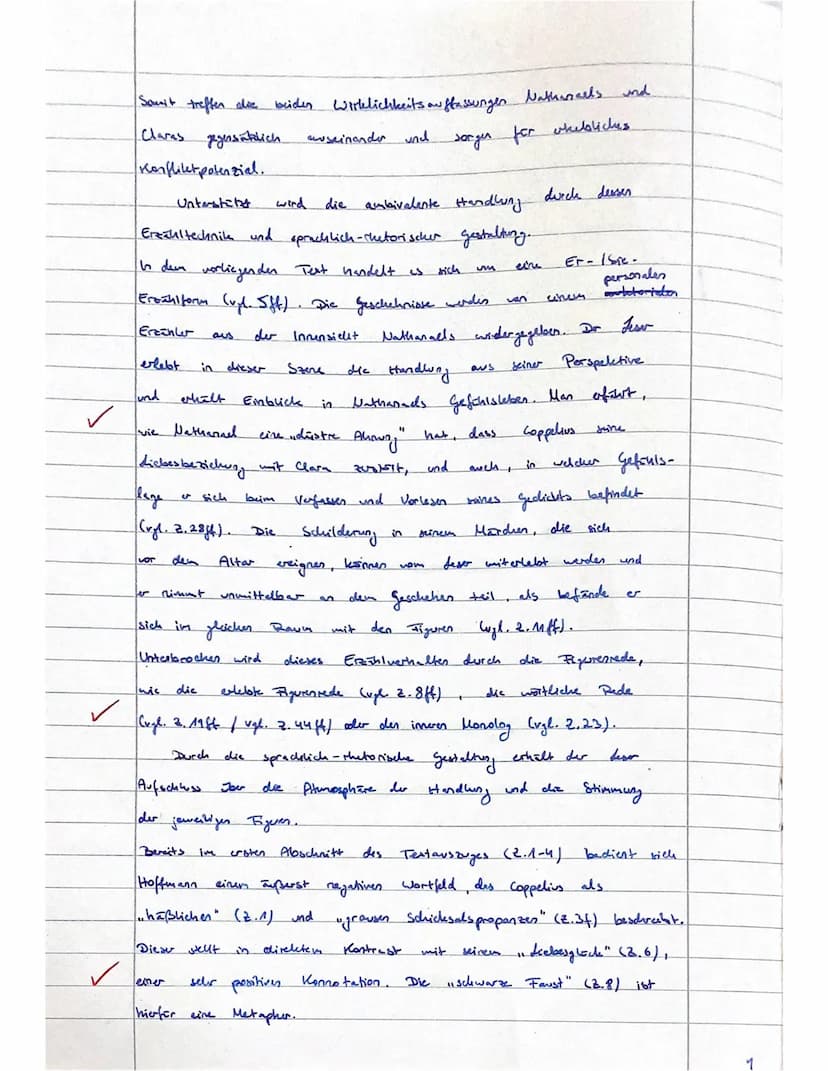 Somit treffen die beiden Wirklichkeitsauffassungen Nathanaels und
Claras gegensätzlich auseinander und sorgen für erhebliches
Konfliktpotenzial.
Unterstützt wird die ambivalente Handlung durch dessen
Erzähltechnik und sprachlich-rhetorischer Gestaltung.
In dem vorliegenden Text handelt es sich um eine Er-/Sie-
personalen
Erzählform (vgl. 5ff). Die Geschehnisse werden von einem auktorialen
Erzähler aus der Innensicht Nathanaels widergegeben. Der Leser
erlebt in dieser Szene die Handlung aus seiner Perspektive
und erhält Einblicke in Nathanaels Gefühlsleben. Man erfährt,
wie Nathanael eine „düstre Ahnung" hat, dass Coppelius seine
Liebesbeziehung mit Clara zerstört, und auch, in welcher Gefühls-
lage er sich beim Verfassen und Vorlesen seines Gedichts befindet
(vgl. Z.28ff). Die Schilderung in seinem Märchen, die sich
vor dem Altar ereignen, können vom Leser miterlebt werden und
er nimmt unmittelbar an dem Geschehen teil, als befände er
sich im gleichen Raum mit den Figuren (vgl. Z.11ff).
Unterbrochen wird dieses Erzählverhalten durch die Figurenrede,
wie die erlebte Figurenrede (vgl. Z.8ff), die wörtliche Rede
(vgl. Z.19ff / vgl. Z.44ff) oder den inneren Monolog (vgl. Z.23).
Durch die sprachlich-rhetorische Gestaltung erhält der Leser
Aufschluss über die Atmosphäre der Handlung und die Stimmung
der jeweiligen Figuren.
Bereits im ersten Abschnitt des Textauszuges (Z.1-4) bedient sich
Hoffmann einem äußerst negativen Wortfeld, das Coppelius als
„häßlichen" (Z.1) und „grausen Schicksalspropanzen" (Z.3f) beschreibt.
Dieser stellt in direktem Kontrast mit seinem „Liebesglück" (Z.6),
einer sehr positiven Konnotation. Die „schwarze Faust" (Z.8) ist
hierfür eine Metapher.
1